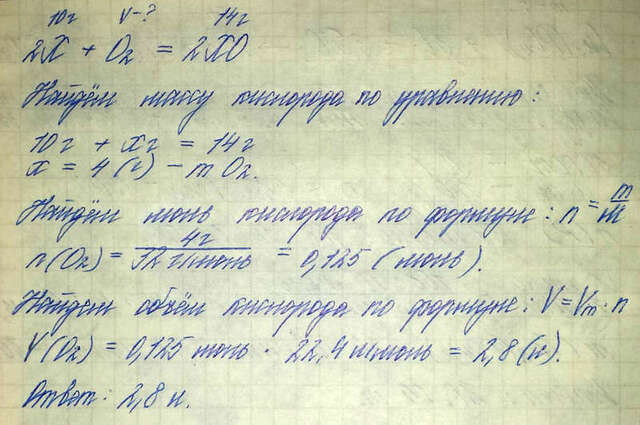 10г V-? 14г
2X + O₂ = 2XO
Найдём массу кислорода по уравнению:
10г + xг = 14г
x = 4 (г) - m O₂.
Найдём моль кислорода по формуле: n = m/M
n(O₂) = 4г/32 г/моль = 0,125 (моль).
Найдем объём кислорода по формуле: V = Vm · n
V(O₂) = 0,125 моль · 22,4 л/моль = 2,8 (л).
Ответ: 2,8 л.